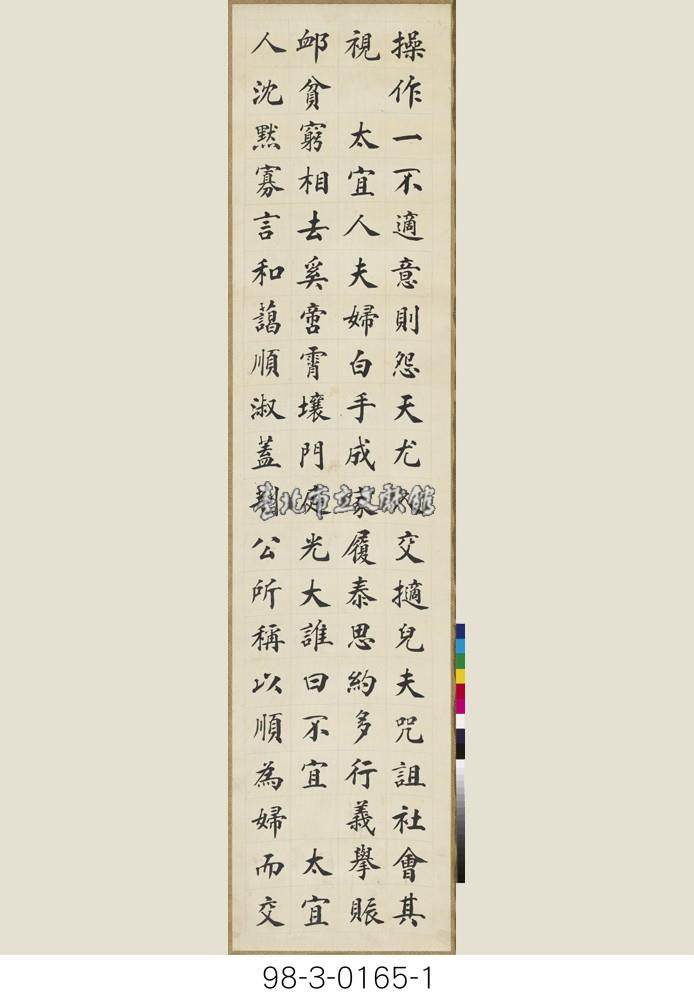 操作一不適意則怨天尤交擿兒夫咒詛社會其
視　太宜人夫婦白手成家履泰思約多行義舉賑
卹貧窮相去奚啻霄壤門庭光大誰曰不宜　太宜
人沈默寡言和藹順淑蓋公所稱以順為婦而交
臺北市立文獻館
98-3-0165-1